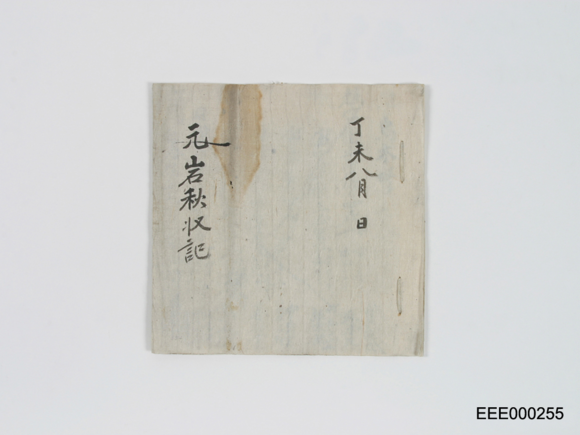 丁未八月 日
元岩秋收記
EEE000255